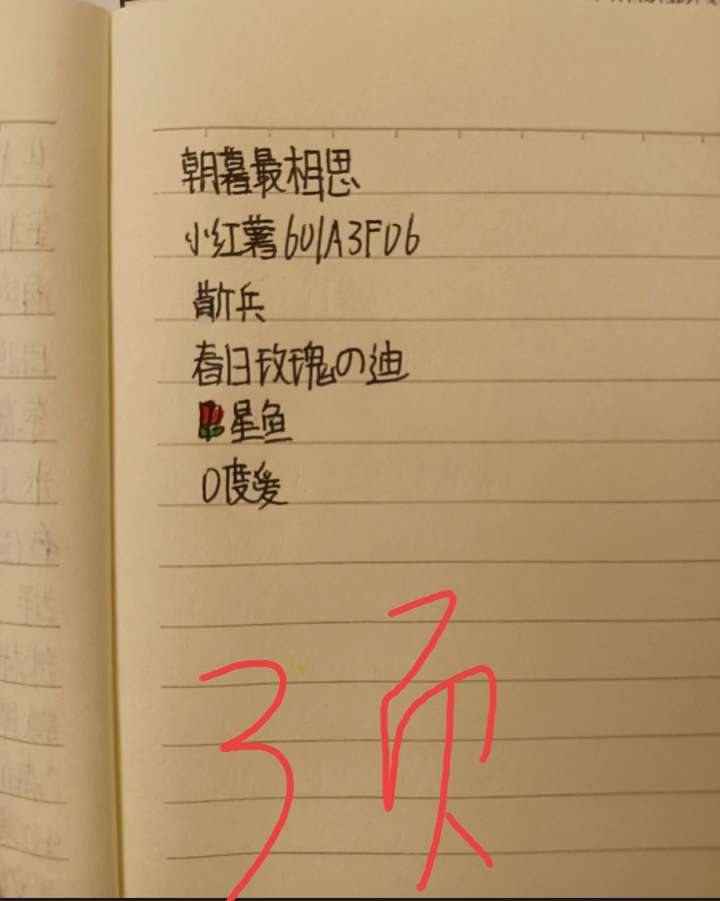 朝暮最相思
小红薯601A3F06
散兵
春日玫瑰の迪
🌹星鱼
0度爱
3页